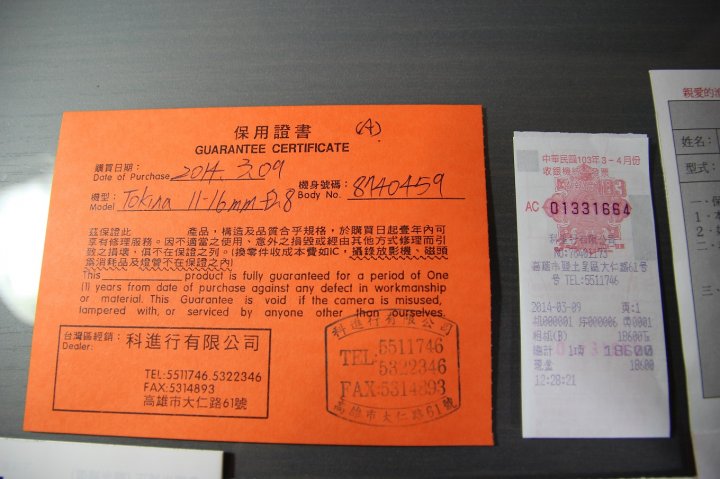 保用證書 (A)
GUARANTEE CERTIFICATE
購買日期：
Date of Purchase 2014. 3.09
機型： 機身號碼：
Model Tokina 11-16mm f2.8 Body No. 8740459
茲保證此 產品，構造及品質合乎規格，於購買日起壹年內可
享有修理服務。因不適當之使用、意外之損毀或經由其他方式修理而引
致之損壞、俱不在保證之列。(換零件收成本費如IC，攝錄放影機、磁頭
需消耗品及燈管不在保證之內)
This product is fully guaranteed for a period of One
(1) years from date of purchase against any defect in workmanship
or material. This Guarantee is void if the camera is misused,
tampered with, or serviced by anyone other than ourselves.
台灣區經銷：
Dealer: 科進行有限公司
TEL:5511746 5322346
FAX:5314893
高雄市大仁路61號
科進行有限公司
TEL:5511746
5322346
FAX:5314893
高雄市大仁路61號
中華民國103年3-4月份
收銀機統一發票
AC 01331664
科進行有限公司
高雄市鹽埕區大仁路61號
號 TEL:5511746
2014-03-09 頁:1
機000001 序000006 0001
相紙(B) 18600
總計 18600
現金 18600
12:28:21
親愛的
姓名：
型式：